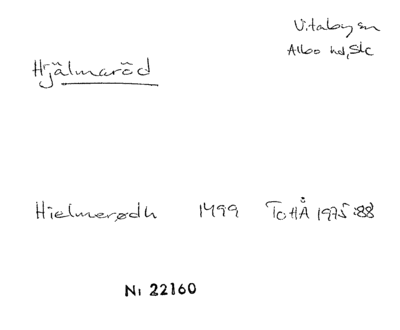 Vitaby sn
Albo hd, Sk
Hjälmaröd
Hielmerødh 1499 TcHÅ 1975:88
Nr 22160